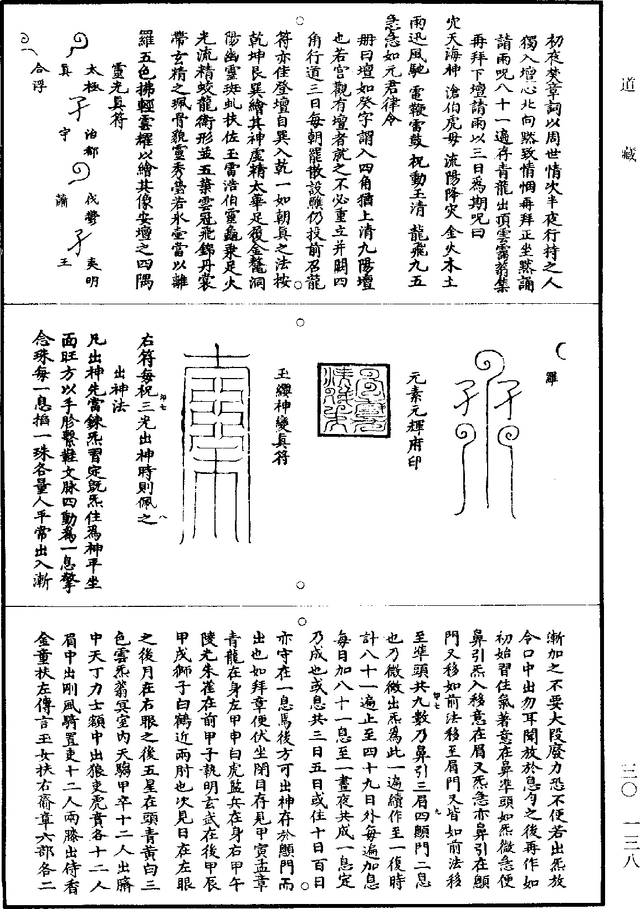 道藏
初夜焚章詞以周世情次半夜行持之人
獨入壇心北向黙致情悃再拜正坐黙誦
請雨呪八十一遍存青龍出頂雲霧蓊集
再拜下壇請雨以三日爲期呪曰
火天海神 滄伯虎母 流陽降灾 金火木土
雨迅風馳 電鞭雷鼓 祝動玉清 龍飛九五
急急如元君律令
册曰壇如癸字謂入四角猶上清九陽壇
也若宫觀有壇者就之不必重立并闢四
角行道三日每朝罷散設醮仍投前召龍
符亦佳登壇自巽入乾一如朝真之法按
乾坤艮巽繪其神虚精太華足履金鼇洞
陽幽靈蚪虬扶佐玉雷浩伯靈龜乘足火
光流精蛟龍銜形並五葉雲冠飛錦丹裳
帶玄精之珮骨貌靈秀瑩若氷壺當以離
羅五色拂輕雲耀以繪其像安壇之四隅
靈光真符
太極
治都
戊鬱
夷明
真
守
蕭
王
合浮
羅
元素元輝府印
玉纓神變真符
右符每祝三光出神時則佩之
出神法
凡出神先當鍊炁習定旣炁住爲神平坐
面旺方以手胗繫雞文脉四動爲一息擎
念珠每一息掐一珠各量人平常出入漸
漸加之不要大段廢力恐不便若出炁放
令口中出勿耳聞放於息勻之後再作如
初始習住氣著意在鼻準頭如炁微急便
鼻引炁入移意在眉又炁急亦鼻引在顖
門又移如前法移至眉門又皆如前法移
至準頭共九數乃鼻引三眉四顖門二息
也乃微微出炁爲此一遍續作至一復時
計八十一遍止至四十九日外每遍加息
每日加八十一息至一晝夜共成一息定
乃成也或息共三日五日或住十日百日
亦守在一息焉後方可出神存於顖門而
出也如拜章便伏坐閉目存見甲寅孟章
青龍在身左甲申白虎監兵在身右甲午
陵光朱雀在前甲子執明玄武在後甲辰
甲戌獅子白鶴近兩肘也次見日在左眼
之後月在右眼之後五星在頭青黄白三
色雲炁蓊冥室内天騶甲卒十二人出臍
中天丁力士額中出狼吏虎賁各十二人
眉中出剛風騎置吏十二人兩膝出侍香
金童扶左傳言玉女扶右齎章六部各二
三〇 一三八